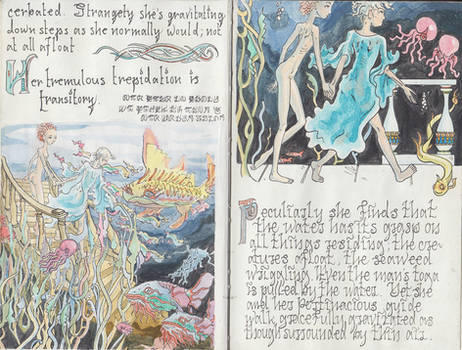 cerbated. Strangely she's gravitating
down steps as she normally would; not
at all afloat
Her tremulous trepidation is
transitory.
Peculiarly she finds that
the water has its grasp on
all things residing, the cre-
atures afloat, the seaweed
wriggling. Even the man's toga
is pulled by the water. Yet she
and her pertinacious guide
walk gracefully gravitated as
though surrounded by thin air.